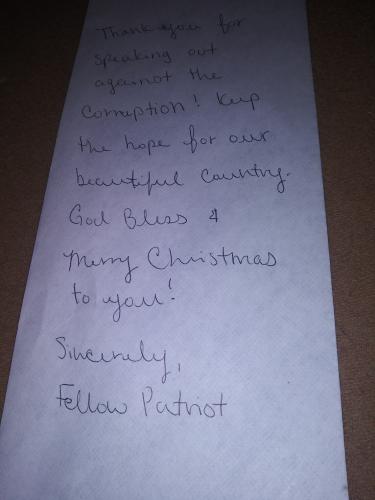 Thank you for
speaking out
against the
Corruption! Keep
the hope for our
beautiful Country.
God Bless &
Merry Christmas
to you!
Sincerely,
Fellow Patriot